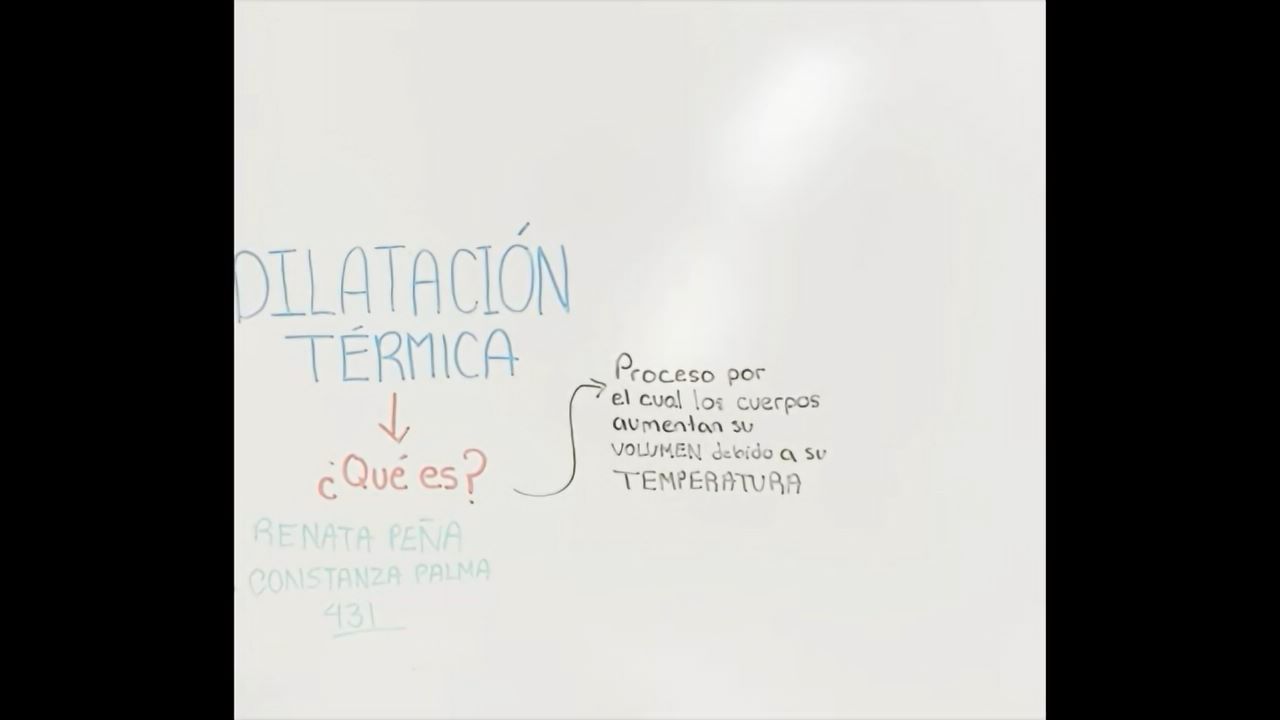 DILATACIÓN
TÉRMICA
¿Qué es?
Proceso por
el cual los cuerpos
aumentan su
VOLUMEN debido a su
TEMPERATURA
RENATA PEÑA
CONSTANZA PALMA
431